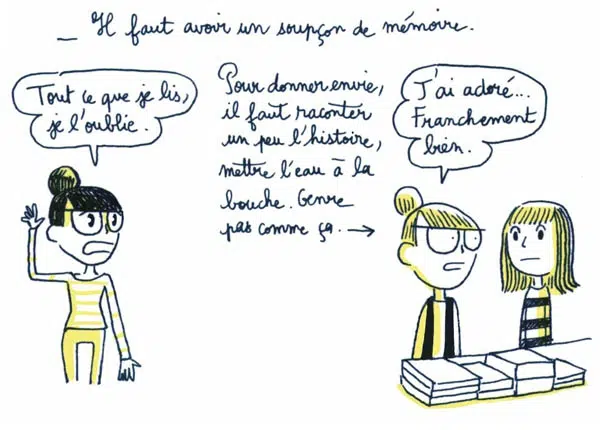 _ Il faut avoir un soupçon de mémoire.
Tout ce que je lis,
je l'oublie.
Pour donner envie,
il faut raconter
un peu l'histoire,
mettre l'eau à la
bouche. Genre
pas comme ça. →
J'ai adoré...
Franchement
bien.